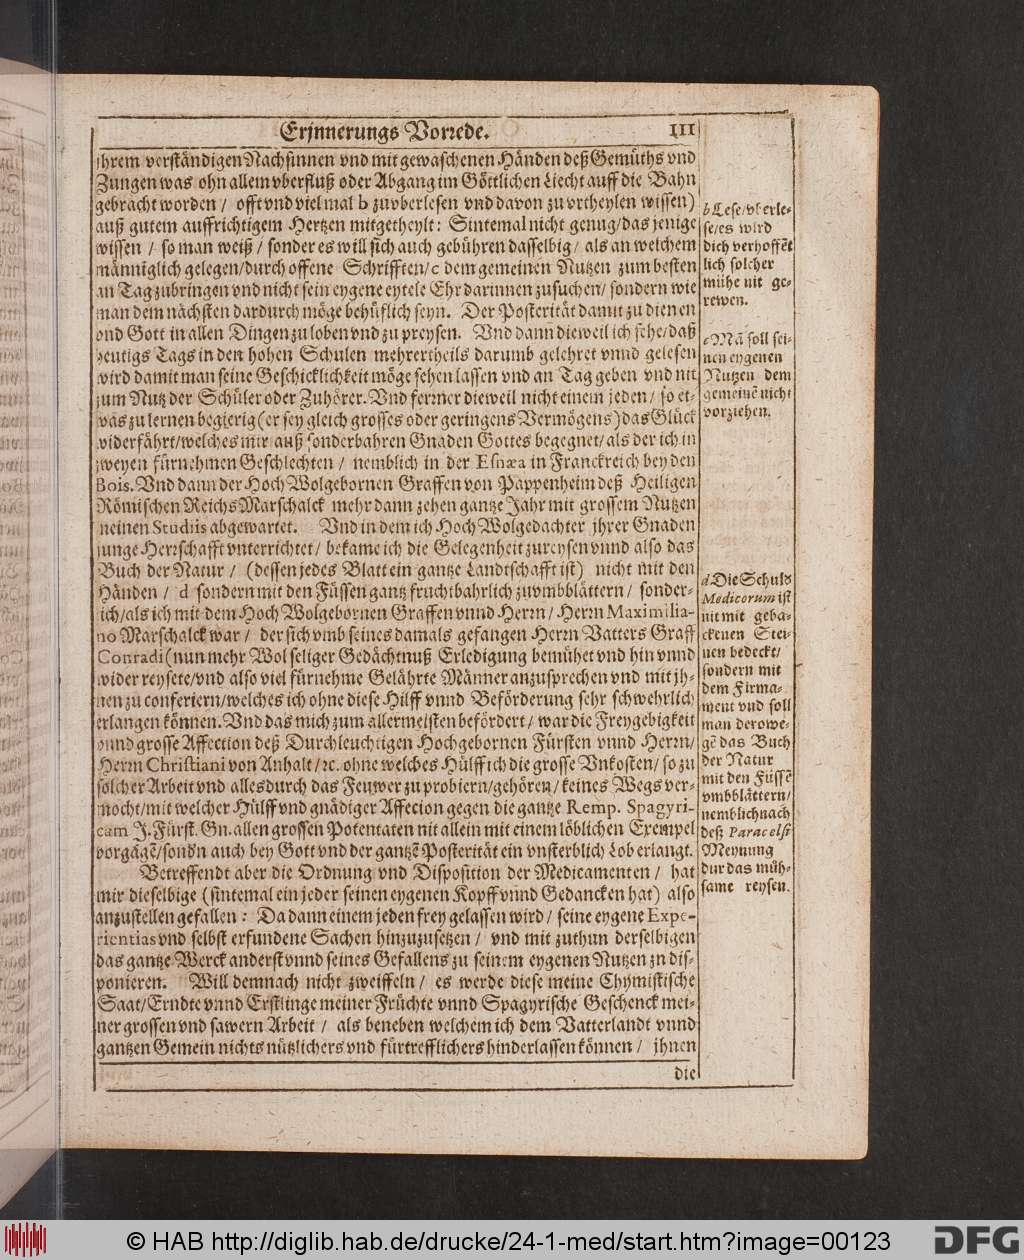 Erjnnerungs Vorrede. 111
jhrem verständigen Nachsinnen vnd mit gewaschenen Händen deß Gemüths vnd
Zungen was ohn allem vberfluß oder Abgang im Göttlichen Liecht auff die Bahn
gebracht worden / offt vnd viel mal b zuvberlesen vnd davon zu vrtheylen wissen)
auß gutem auffrichtigem Hertzen mitgetheylt: Sintemal nicht genug/das jenige
wissen / so man weiß / sonder es will sich auch gebühren dasselbig / als an welchem
männiglich gelegen/durch offene Schrifften/c dem gemeinen Nutzen zum besten
an Tag zubringen vnd nicht sein eygene eytele Ehr darinnen zusuchen/ sondern wie
man dem nächsten dardurch möge behüflich seyn. Der Posterität damit zu dienen
ond Gott in allen Dingen zu loben vnd zu preysen. Vnd dann dieweil ich sehe/daß
heutigs Tags in den hohen Schulen mehrertheils darumb gelehret vnnd gelesen
wird damit man seine Geschicklichkeit möge sehen lassen vnd an Tag geben vnd nit
zum Nutz der Schüler oder Zuhörer. Vnd ferrner dieweil nicht einem jeden / so et-
was zu lernen begierig (er sey gleich grosses oder geringens Vermögens) das Glück
widerfährt/welches mir auß sonderbahren Gnaden Gottes begegnet/als der ich in
zweyen fürnehmen Geschlechten / nemblich in der Esnæa in Franckreich bey den
Bois. Vnd dann der Hoch Wolgebornen Graffen von Pappenheim deß Heiligen
Römischen Reichs Marschalck mehr dann zehen gantze Jahr mit grossem Nutzen
meinen Studiis abgewartet. Vnd in dem ich Hoch Wolgedachter jhrer Gnaden
junge Herrschafft vnterrichtet / bekame ich die Gelegenheit zureysen vnnd also das
Buch der Natur / (dessen jedes Blatt ein gantze Landtschafft ist) nicht mit den
Händen / d sondern mit den Füssen gantz fruchtbahrlich zuvmbblättern / sonder-
lich/als ich mit dem Hoch Wolgebornen Graffen vnnd Herrn/ Herrn Maximilia-
no Marschalck war / der sich vmb seines damals gefangen Herrn Vatters Graff
Conradi (nun mehr Wol seliger Gedächtnuß Erledigung bemühet vnd hin vnnd
wider reysete/vnd also viel fürnehme Gelährte Männer anzusprechen vnd mit jh-
nen zu conferiern/welches ich ohne diese Hilff vnnd Beförderung sehr schwehrlich
erlangen können. Vnd das mich zum allermeisten befördert / war die Freygebigkeit
vnnd grosse Affection deß Durchleuchtigen Hochgebornen Fürsten vnnd Herrn/
Herrn Christiani von Anhalt/ꝛc. ohne welches Hülff ich die grosse Vnkosten/ so zu
solcher Arbeit vnd alles durch das Feuwer zu probiern/gehören/ keines Wegs ver-
mocht/mit welcher Hülff vnd gnädiger Affection gegen die gantze Remp. Spagyri-
cam J. Fürst. Gn. allen grossen Potentaten nit allein mit einem löblichen Exempel
vorgāgē/sondn auch bey Gott vnd der gantzē Posterität ein vnsterblich Lob erlangt.
Betreffendt aber die Ordnung vnd Disposition der Medicamenten / hat
mir dieselbige (sintemal ein jeder seinen eygenen Kopff vnnd Gedancken hat) also
anzustellen gefallen: Da dann einem jeden frey gelassen wird / seine eygene Expe-
rientias vnd selbst erfundene Sachen hinzuzusetzen / vnd mit zuthun derselbigen
das gantze Werck anderst vnnd seines Gefallens zu seinem eygenen Nutzen zn dis-
ponieren. Will demnach nicht zweiffeln / es werde diese meine Chymistische
Saat/Erndte vnnd Erstlinge meiner Früchte vnnd Spagyrische Geschenck mei-
ner grossen vnd sawern Arbeit / als beneben welchem ich dem Vatterlandt vnnd
gantzen Gemein nichts nützlichers vnd fürtrefflichers hinderlassen können / jhnen
die
b Lese/vberle-
se/es wird
dich verhoffēt
lich solcher
mühe nit ge-
rewen.
c Mā soll sei-
nen eygenen
Nutzen dem
gemeinē nicht
vorziehen.
d Die Schuls
Medicorum ist
nit mit geba-
ckenen Stei-
nen bedeckt/
sondern mit
dem Firma-
ment vnd soll
man derowe-
gē das Buch
der Natur
mit den Füssē
vmbblättern/
nemblich nach
deß Paracelsi
Meynung
dur das müh-
same reysen.
© HAB http://diglib.hab.de/drucke/24-1-med/start.htm?image=00123
DFG